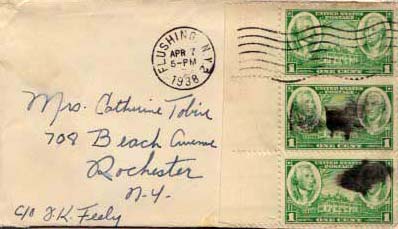 FLUSHING N.Y.
APR 7
5-PM
1938
UNITED STATES
POSTAGE
1 ONE CENT 1
UNITED STATES
POSTAGE
1 ONE CENT 1
UNITED STATES
POSTAGE
1 ONE CENT 1
Mrs. Catherine Tobin
708 Beach Avenue
Rochester
N-Y.
c/o J.K. Feely